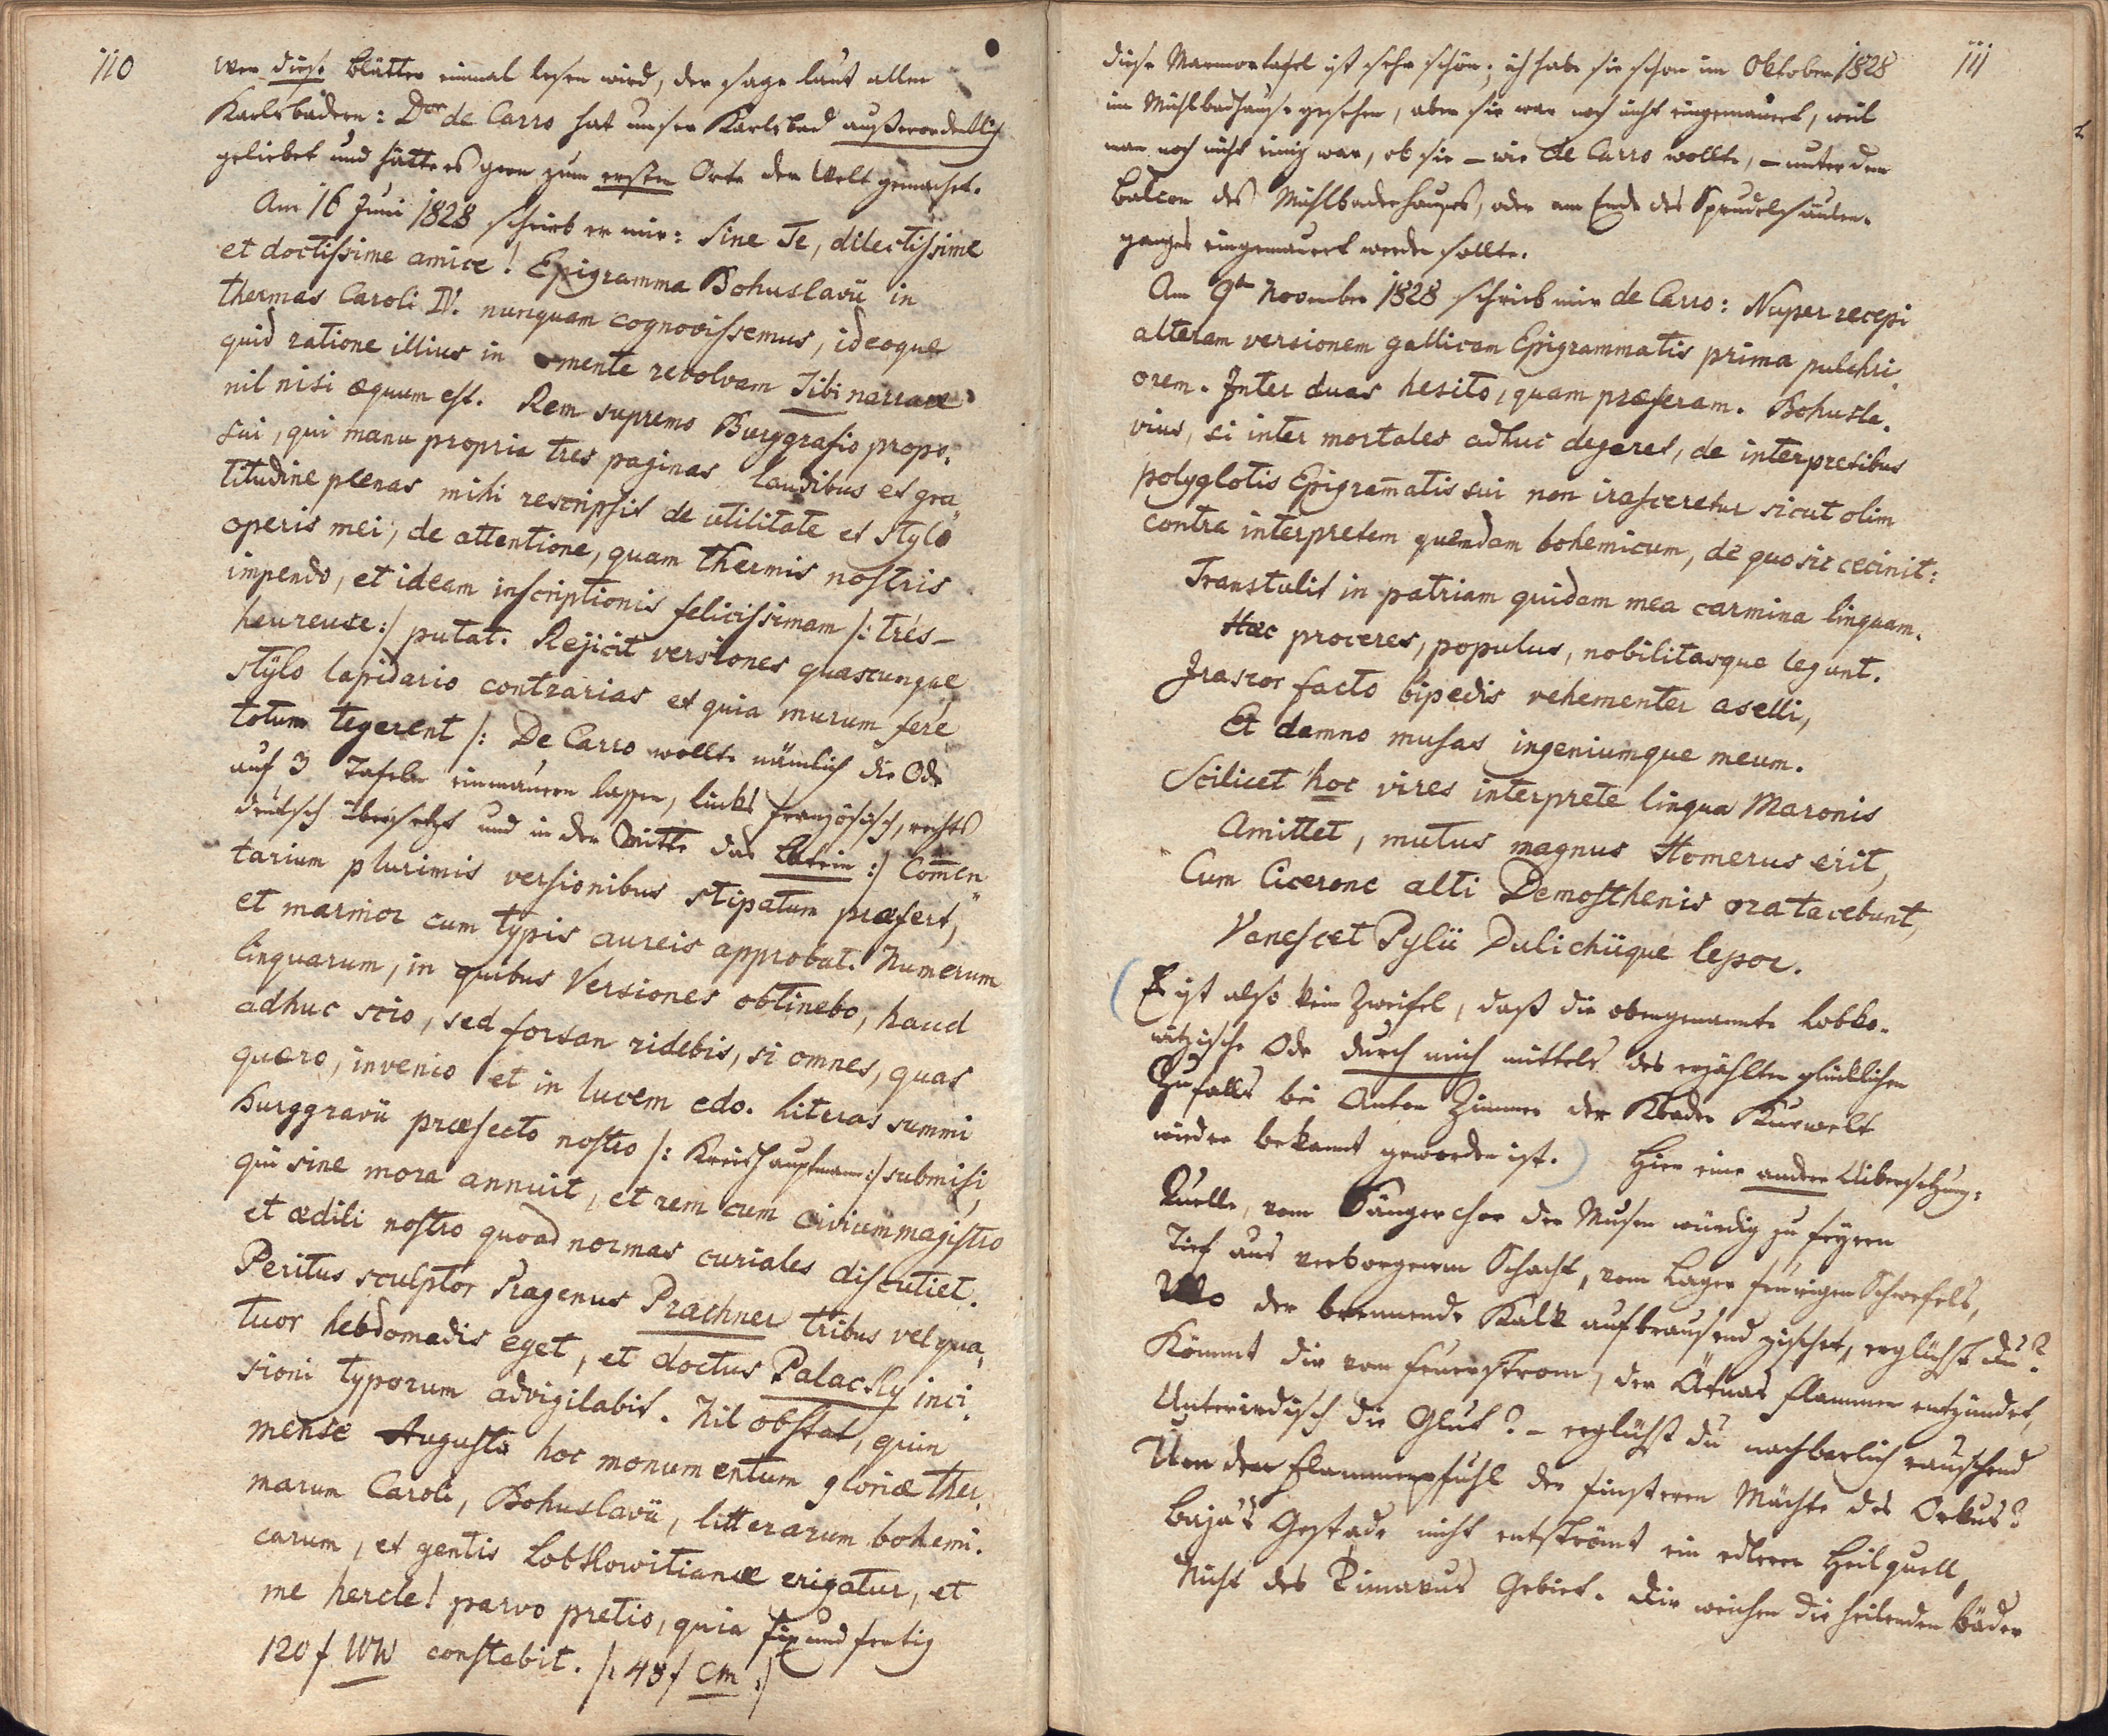 110
wer diese Blätter einmal lesen wird, der sage laut allen
Karlsbadern: Dor de Carro hat unser Karlsbad außerordentlich
geliebet und hätte es gern zum ersten Orte der Welt gemacht.
Am 16 Juni 1828 schrieb er mir: Sine Te, dilectissime
et doctissime amice! Epigramma Bohuslavii in
thermas Caroli IV. nunquam cognovissemus, ideoque
quid ratione illius in mente revolvam Tibi narrare
nil nisi æquum est. Rem supremo Burggrafio propo-
sui, qui manu propria tres paginas laudibus et gra-
titudine plenas mihi rescripsit de utilitate et stylo
operis mei, de attentione, quam thermis nostris
impendo, et ideam inscriptionis felicissimam /: très-
heureuse :/ putat. Rejicit versiones quascunque
stÿlo lapidario contrarias et quia murum fere
totum tegerent /: De Carro wollte nämlich die Ode
auf 3 Tafeln einmauern lassen, links französisch, rechts
deutsch übersetzt und in der Mitte das Latein :/ Com̄en-
tarium plurimis versionibus stipatum præfert,
et marmor cum typis aureis approbat. Numerum
linguarum, in quibus Versiones obtinebo, haud
adhuc scio, sed forsan ridebis, si omnes, quas
quæro, invenio et in lucem edo. Literas summi
Burggravii præfecto nostro /: Kreishauptmann :/ submisi,
qui sine mora annuit, et rem cum civium magistro
et ædili nostro quoad normas curiales discutiet.
Peritus sculptor Pragenus Prachner tribus vel qua-
tuor hebdomadis eget, et doctus Palacky inci-
sioni typorum advigilabit. Nil obstat, quin
mense Augusto hoc monumentum gloriæ ther-
marum Caroli, Bohuslavii, litterarum bohemi-
carum, et gentis Lobkowitianæ erigatur, et
me hercle! parvo pretio, quia fix und fertig
120 f WW constabit. /: 48 f CM :/
111
diese Marmortafel ist sehr schön; ich habe sie schon im Oktober 1828
im Mühlbadhause gesehen, aber sie war noch nicht eingemauert, weil
man noch nicht einig war, ob sie – wie de Carro wollte, – unter dem
Balcon des Mühlbadhauses, oder am Ende des Sprudelsäulen-
ganges eingemauert werden sollte.
Am 9ten November 1828 schrieb mir de Carro: Nuper recepi
alteram versionem gallicam Epigrammatis prima pulchri-
orem. Inter duas hesito, quam præferam. Bohusla-
vius, si inter mortales adhuc degeret, de interpretibus
polyglotis Epigram̄atis sui non irasceretur sicut olim
contra interpretem quendam bohemicum, de quo sic cecinit:
Transtulit in patriam quidam mea carmina linguam.
Hæc proceres, populus, nobilitasque legunt.
Irascor facto bipedis vehementer aselli,
Et damno musas ingeniumque meum.
Scilicet hoc vires interprete lingua Maronis
Amittet, mutus magnus Homerus erit,
Cum Cicerone alti Demosthenis ora tacebunt,
Vanescet Pylii Dulichiique lepor.
(Es ist also kein Zweifel, daß die obengenannte Lobko-
witzische Ode durch mich mittels des erzählten glücklichen
Zufalls bei Anton Zimmer der Kbader Kurwelt
wieder bekannt geworden ist.) Hier eine andere Uibersetzung:
Quelle, vom Sängerchor der Musen würdig zu feyern
Tief aus verborgenem Schacht, vom Lager feurigen Schwefels,
Wo der brennende Kalk aufbrausend zischet, erglühst du?
Kömmt dir vom Feuerstrom, der Ätnas Flammen entzündet,
Unterirdisch die Glut? – erglühst du nachbarlich rauschend
Um den Flammenpfuhl der finsteren Mächte des Orkus?
Baja's Gestade nicht entströmt ein edlerer Heilquell,
Nicht des Timavus Gebiet. Dir weichen die heilenden Bäder